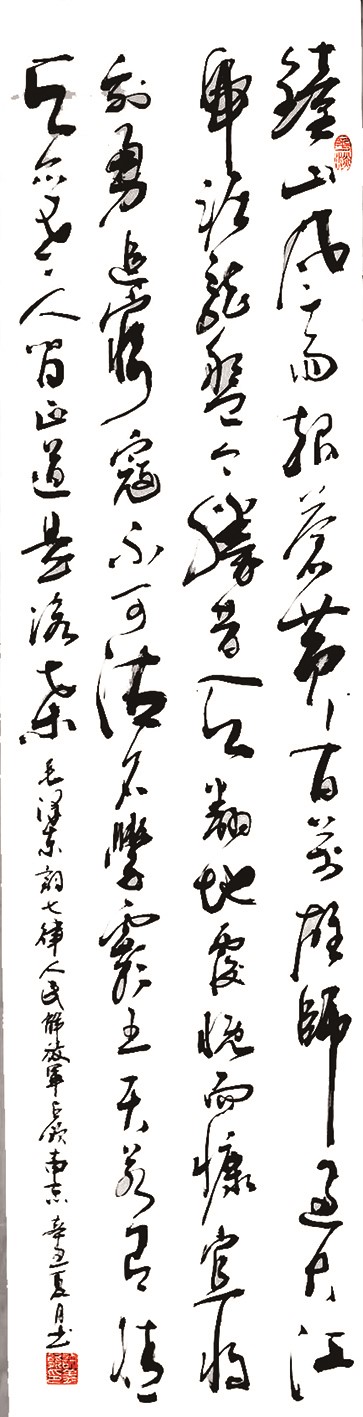 鐘山风雨起苍黄百万雄師過大江
虎踞龍盤今勝昔天翻地覆慨而慷宜将
剩勇追窮寇不可沽名學霸王天若有情
天亦老人间正道是滄桑 毛泽东詞七律人民解放軍占领南京 辛丑夏月书